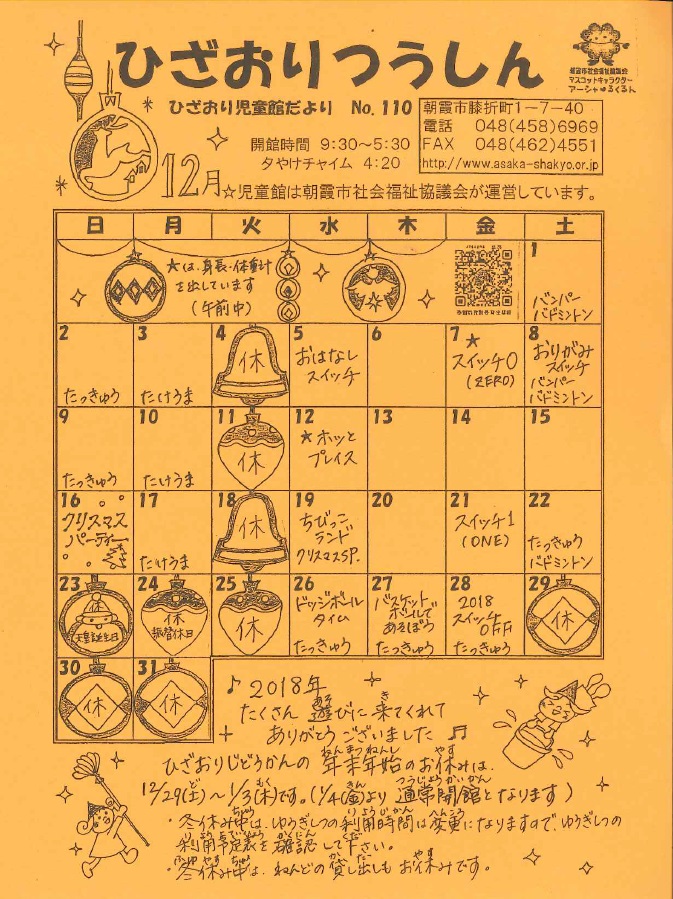 ひざおりつうしん
朝霞市社会福祉協議会
マスコットキャラクター
アーシャゆるくるん
ひざおり児童館だより No. 110
朝霞市膝折町1-7-40
電話 048(458)6969
FAX 048(462)4551
http://www.asaka-shakyo.or.jp
開館時間 9:30～5:30
夕やけチャイム 4:20
12月
☆児童館は朝霞市社会福祉協議会が運営しています。
日 月 火 水 木 金 土
★は、身長・体重計
を出しています
(午前中)
1
バンパー
バドミントン
2
たっきゅう
3
たけうま
4
休
5
おはなし
スイッチ
6
7 ★
スイッチ0
(ZERO)
8
おりがみ
スイッチ
バンパー
バドミントン
9
たっきゅう
10
たけうま
11
休
12
★ホッと
プレイス
13
14
15
16
クリスマス
パーティー
17
たけうま
18
休
19
ちびっこ
ランド
クリスマスSP.
20
21
スイッチ1
(ONE)
22
たっきゅう
バドミントン
23
休
天皇誕生日
24
休
振替休日
25
休
26
ドッジボール
タイム
たっきゅう
27
バスケット
ボールで
あそぼう
たっきゅう
28
2018
スイッチ
OFF
たっきゅう
29
休
30
休
31
休
♪ 2018年
たくさん 遊びに 来てくれて
ありがとう ございました ♫
ひざおりじどうかんの 年末年始のお休みは、
12/29(土)～1/3(木)です。(1/4(金)より 通常開館となります)
・冬休み中は、ゆうぎしつの利用時間は変更になりますので、ゆうぎしつの
利用予定表を 確認して下さい。
・冬休み中は、ねんどの 貸し出しも お休みです。